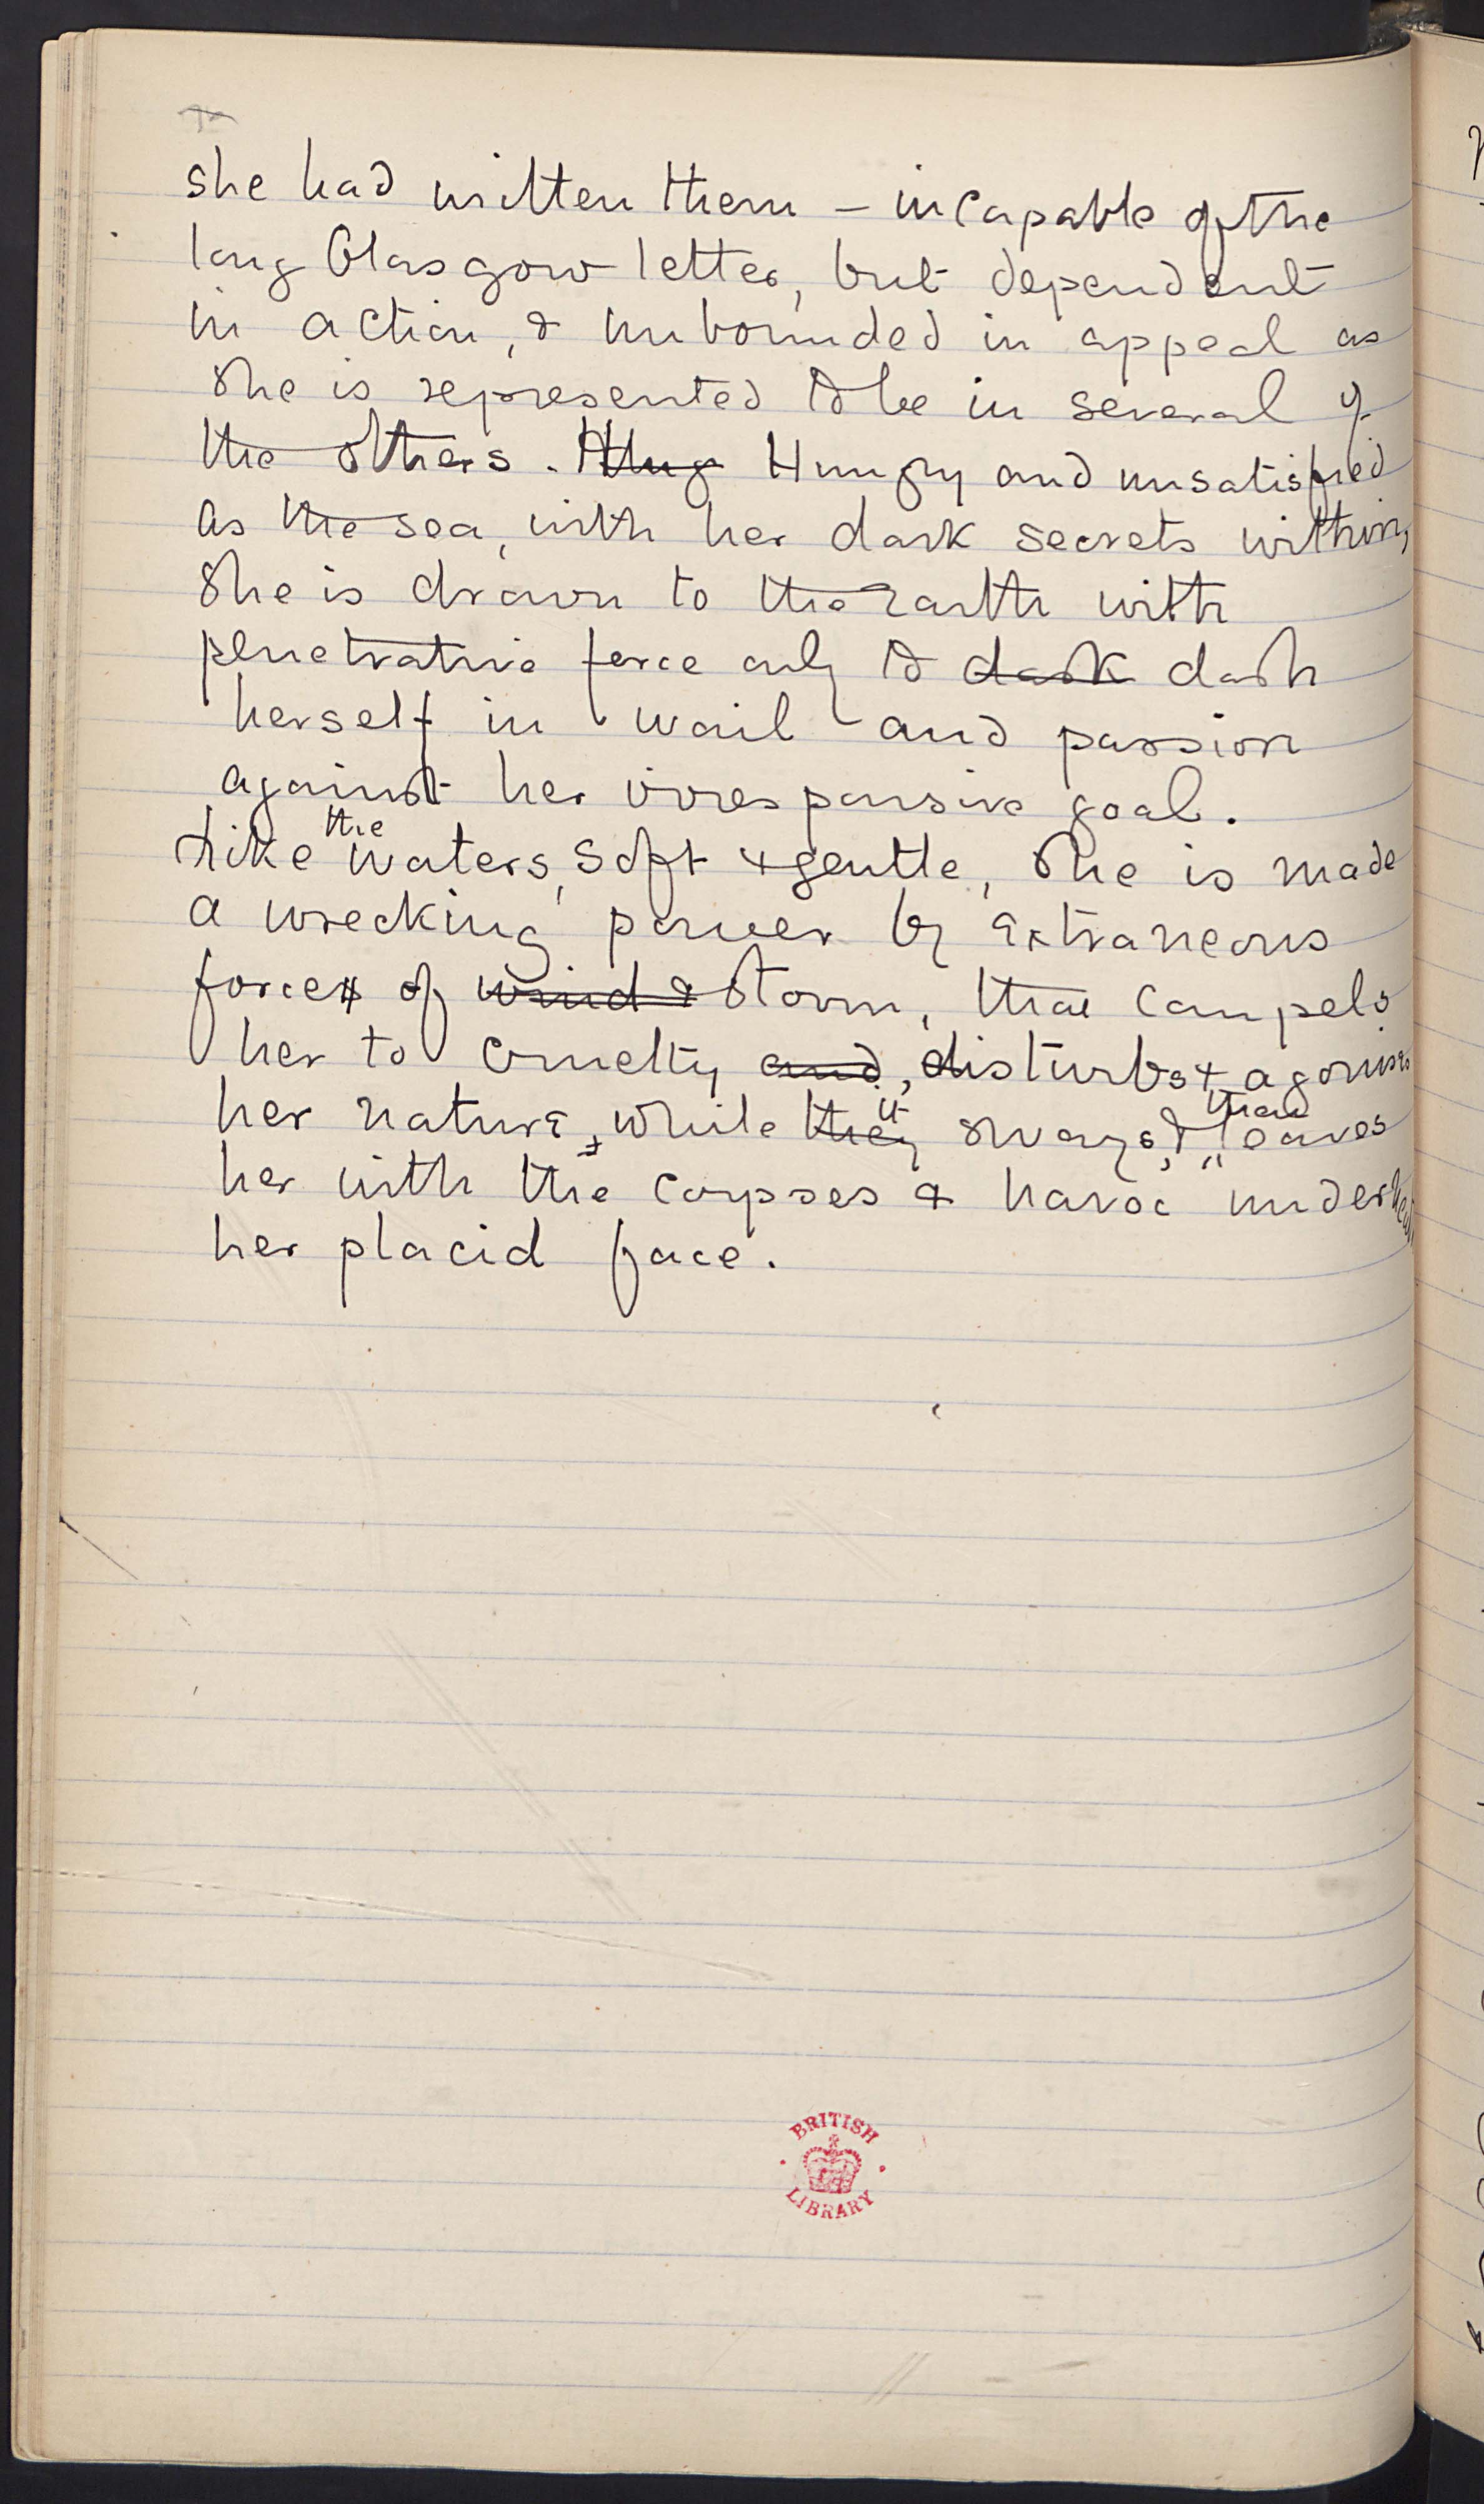 she had written them – incapable of the
long Glasgow letter, but dependent
in action, & unbounded in appeal as
She is represented to be in several of
the others. Hung Hungry and unsatisfied
as the sea, with her dark secrets within,
She is drawn to the earth with
penetrative force only to dask dash
herself in wail and passion
against her irresponsive goal.
Like the waters, soft & gentle, She is made
a wrecking power by extraneous
forces of wind & storm, that compels
her to cruelty and, disturbs & agonises
her nature, while they it sways, & then leaves
her with the corpses & havoc underneath
her placid face.
BRITISH
LIBRARY